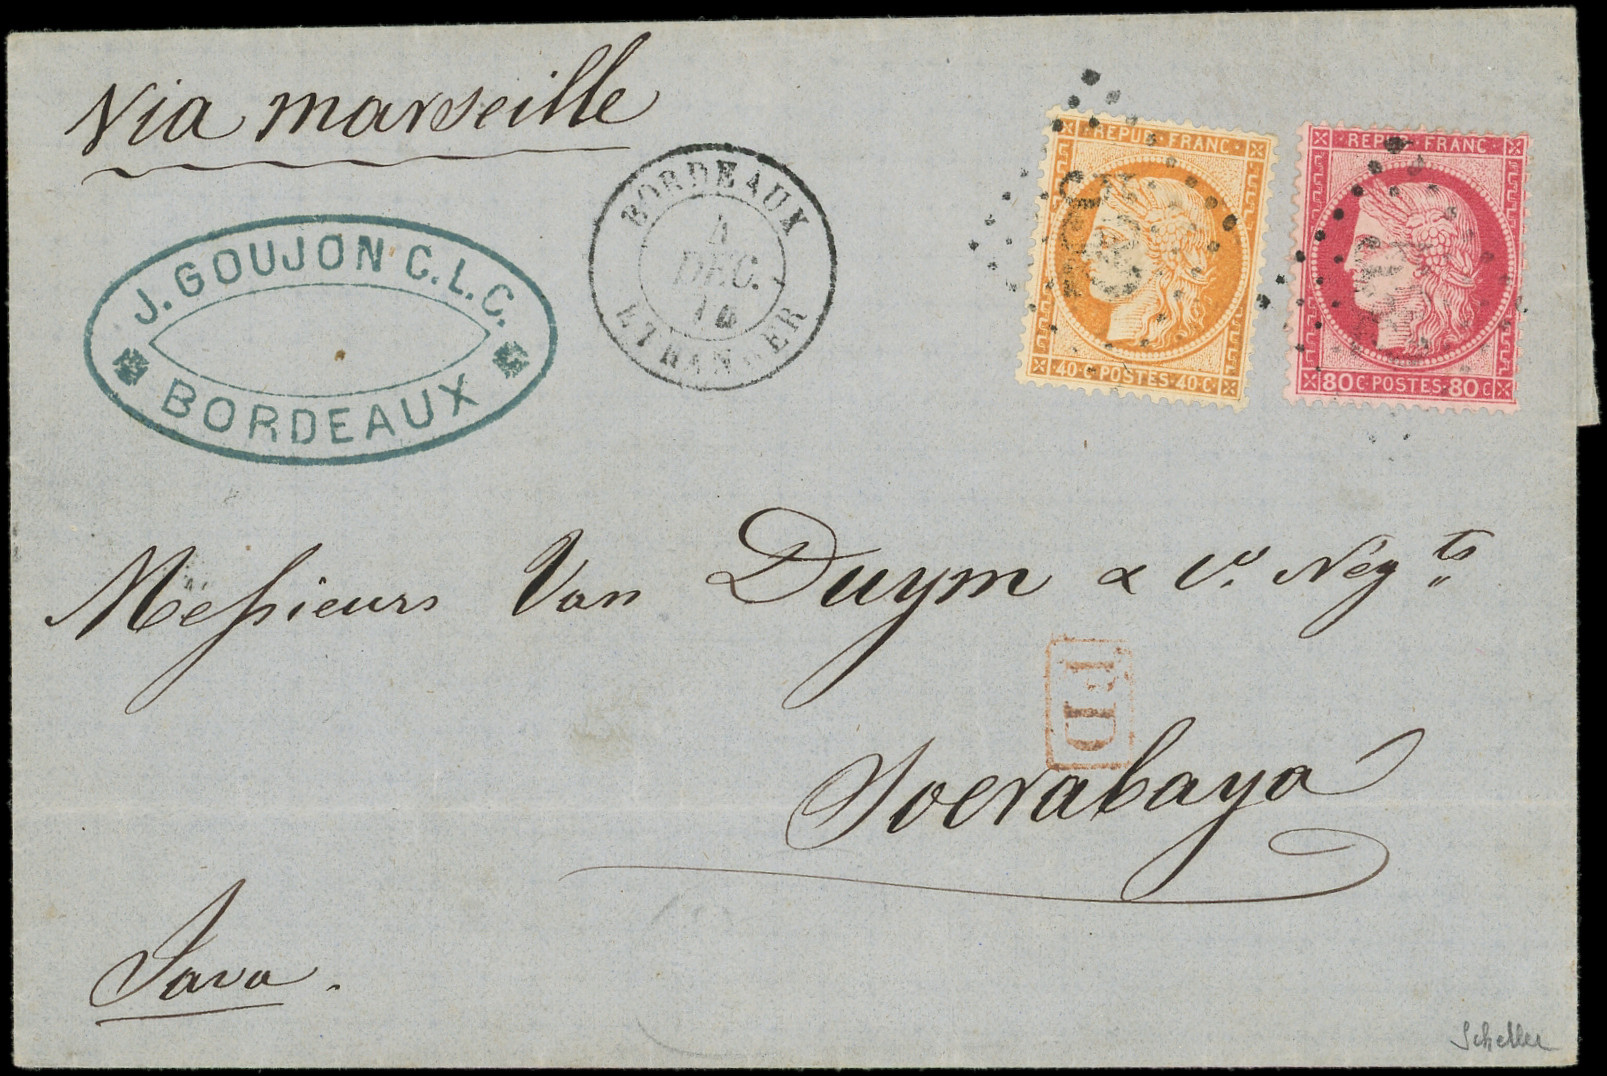 Via marseille
J. GOUJON C.L.C.
BORDEAUX
BORDEAUX
4
DEC.
ETRANGER
REPUB FRANC
40 C POSTES 40 C
REPUB FRANC
80 C POSTES 80 C
Messieurs Van Duym & Co. Négts
PD
Soerabaya
Java.
Scheller